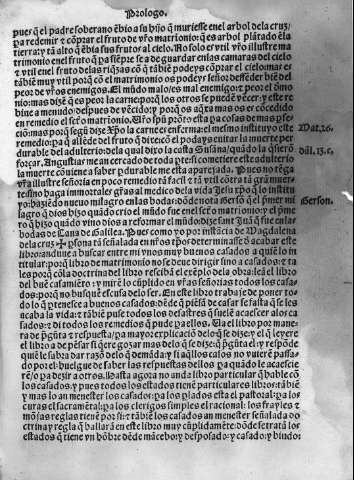 Prologo.
pues q̃ el padre soberano ẽbio a su hijo q̃ muriesse en el arbol dela cruz
pa redemir e cõprar el fruto de vr̃o matrimonio: que es arbol plãtado ẽ la
tierra: y tã alto q̃ ẽbia sus frutos al cielo. No solo es vtil vr̃o illustre ma
trimonio en el fruto q̃ pa siẽpre se a de guardar en las camaras del cielo
e vtil en el fruto delas riq̃zas cõ q̃ tãbiẽ podeys cõprar el cielo mas es
tẽ vtil muy mas por q̃ cõ el matrimonio os podeys señor defẽder biẽ del
peor de vr̃os enemigos. El mũdo malo/es mal enemigo: peor el demo
nio: mas dizẽ q̃ es peor la carne porq̃ los otros se puedẽ vecer: y este re
biue a menudo: despues de vẽcido: y porq̃ os aq̃xa mas os es cõcedido
en remedio el sctõ matrimonio. Vr̃o spũ prõto esta pa cosas de mas pe
cio: mas porq̃ segũ dize Xp̃o la carne es enferma: el mesmo instituyo este
remedio: pa q̃ allẽde del fruto q̃ dixe cõ el podays euitar la muerte per
durable del adulterio: dela qual dixo la casta Susana/quãdo la q̃sierõ
forçar. Angustias me an cercado de toda pte: si cometiere este adulterio
la muerte cõuiene a saber pdurable me esta aparejada. Pues no tẽga
vr̃a illustre señoria en poco remedio tã facil e tã vtil cõtra tã grã muerte
 mas haga immortales gr̃as al medico dela vida Jesu xp̃o q̃ lo institu
yo: haziẽdo nueuo milagro en las bodas: dõde nota Gerson q̃ el pmer mi
lagro q̃ dios hizo quãdo crio el mũdo fue en el sctõ matrimonio: y el pme
ro q̃ hizo quãdo vino dios a reformar el mũdo: dize sant Juã q̃ fue en las
bodas de Cana de Galilea. Pues como yo por instãcia de Magdalena
dela cruz ✠ psona tã señalada en nr̃os tp̃os determinasse õ acabar este
libro: anduue a buscar entre mi vnos muy buenos casados a quiẽ lo in
titular: porq̃ libro de matrimonio no se deue dirigir sino a casados: e ta
les porq̃ cõ la doctrina del libro rescibã el exẽplo dela obra: lea el libro
del buẽ casamiẽto: y mire lo cũplido en vr̃as señorias todos los casa
dos: porq̃ no busquẽ escusa delo ser. En este libro trabaje de poner to
do lo q̃ ptenesce a buenos casados: dẽde q̃ piẽsã de casar se fasta q̃ se les
acaba la vida: e tãbiẽ puse todos los desastres q̃ suelẽ acaescer alos ca
sados: e di todos los remedios q̃ pude pa ellos. Va el libro por mane
ra de pgũta e respuesta/pa mayor explicaciõ delo q̃ se dize: y el q̃ leyere
el libro a de pẽsar si q̃ere gozar mas delo q̃ se dize: q̃ pgũta el: y respõde
quiẽ le sabra dar razõ delo q̃ demãda: y si aq̃llos calos no vuierẽ passa
do por el: huelgue de saber las respuestas dellos pa quãdo le acaescie
rẽ/o pa dezir a otros. Hasta agora no anda libro particular q̃ hable cõ
los casados: y pues todos los estados tienẽ particulares libros: tãbiẽ
y mas lo an menester los casados: pa los plados esta el pastoral: pa lo
curas el sacramẽtal: pa los clerigos simples el racional: los frayles e
mõjas reglas tienẽ por si: e tãbiẽ los casados an menester señalada do
ctrina y regla q̃ ballarã en este libro muy cũplidamẽte: dõde se trata los
estados q̃ tiene vn hõbre dẽde mãcebo: y desposado: y casado: y biudo:
Mat. 26.
dãl. 13. c.
Gerson.